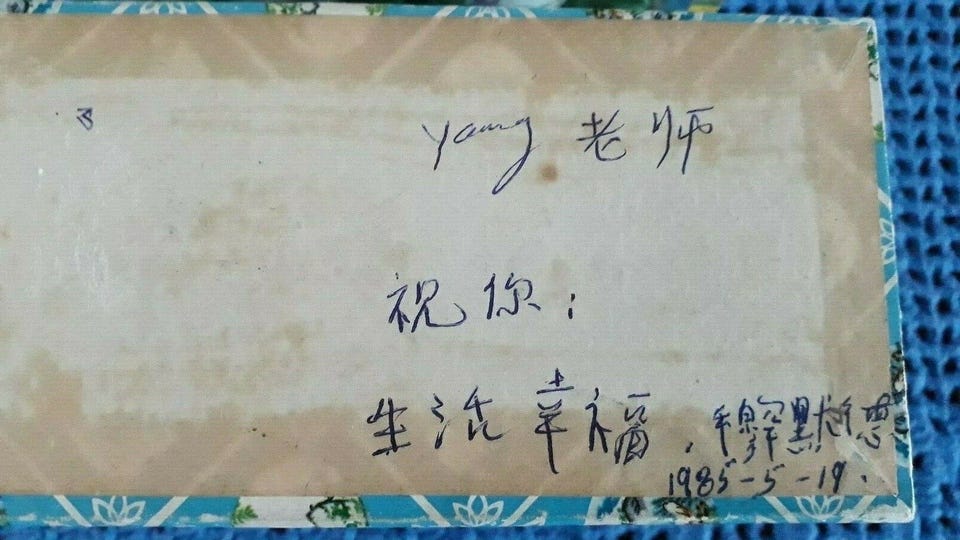 yang 老师
祝你：
生活幸福.穆罕默德
1985-5-19.